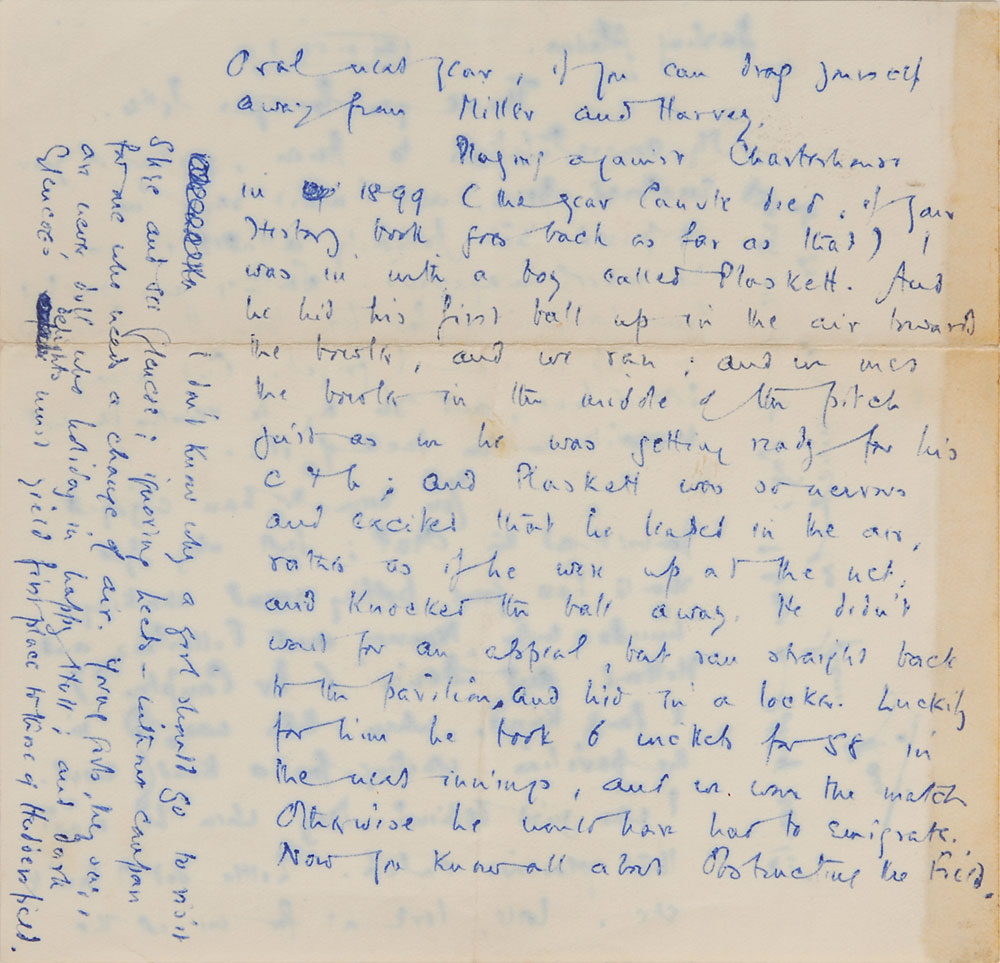 Oval next year, if you can drag yourself
away from Miller and Harvey.
Playing against Charterhouse
in 1899 (the year Canute died, if your
History book goes back as far as that) I
was in with a boy called Plaskett. And
he hit his first ball up in the air towards
the bowler, and we ran; and we met
the bowler in the middle of the pitch
just as he was getting ready for his
c & b; and Plaskett was so nervous
and excited that he leaped in the air,
rather as if he were up at the net,
and knocked the ball away. He didn't
wait for an appeal, but ran straight back
to the pavilion, and hid in a locker. Luckily
for him he took 6 wickets for 58 in
the next innings, and we won the match.
Otherwise he would have had to emigrate.
Now you know all about Obstructing the Field.
I don't know why a girl should go to visit
Skye and see Glencoe; ignoring Leeds – without compare
for one who needs a change of air. Young girls, they say,
are never dull who holiday in happy Hull; and dark
Glencoe's delights must yield first place to those of Huddersfield.